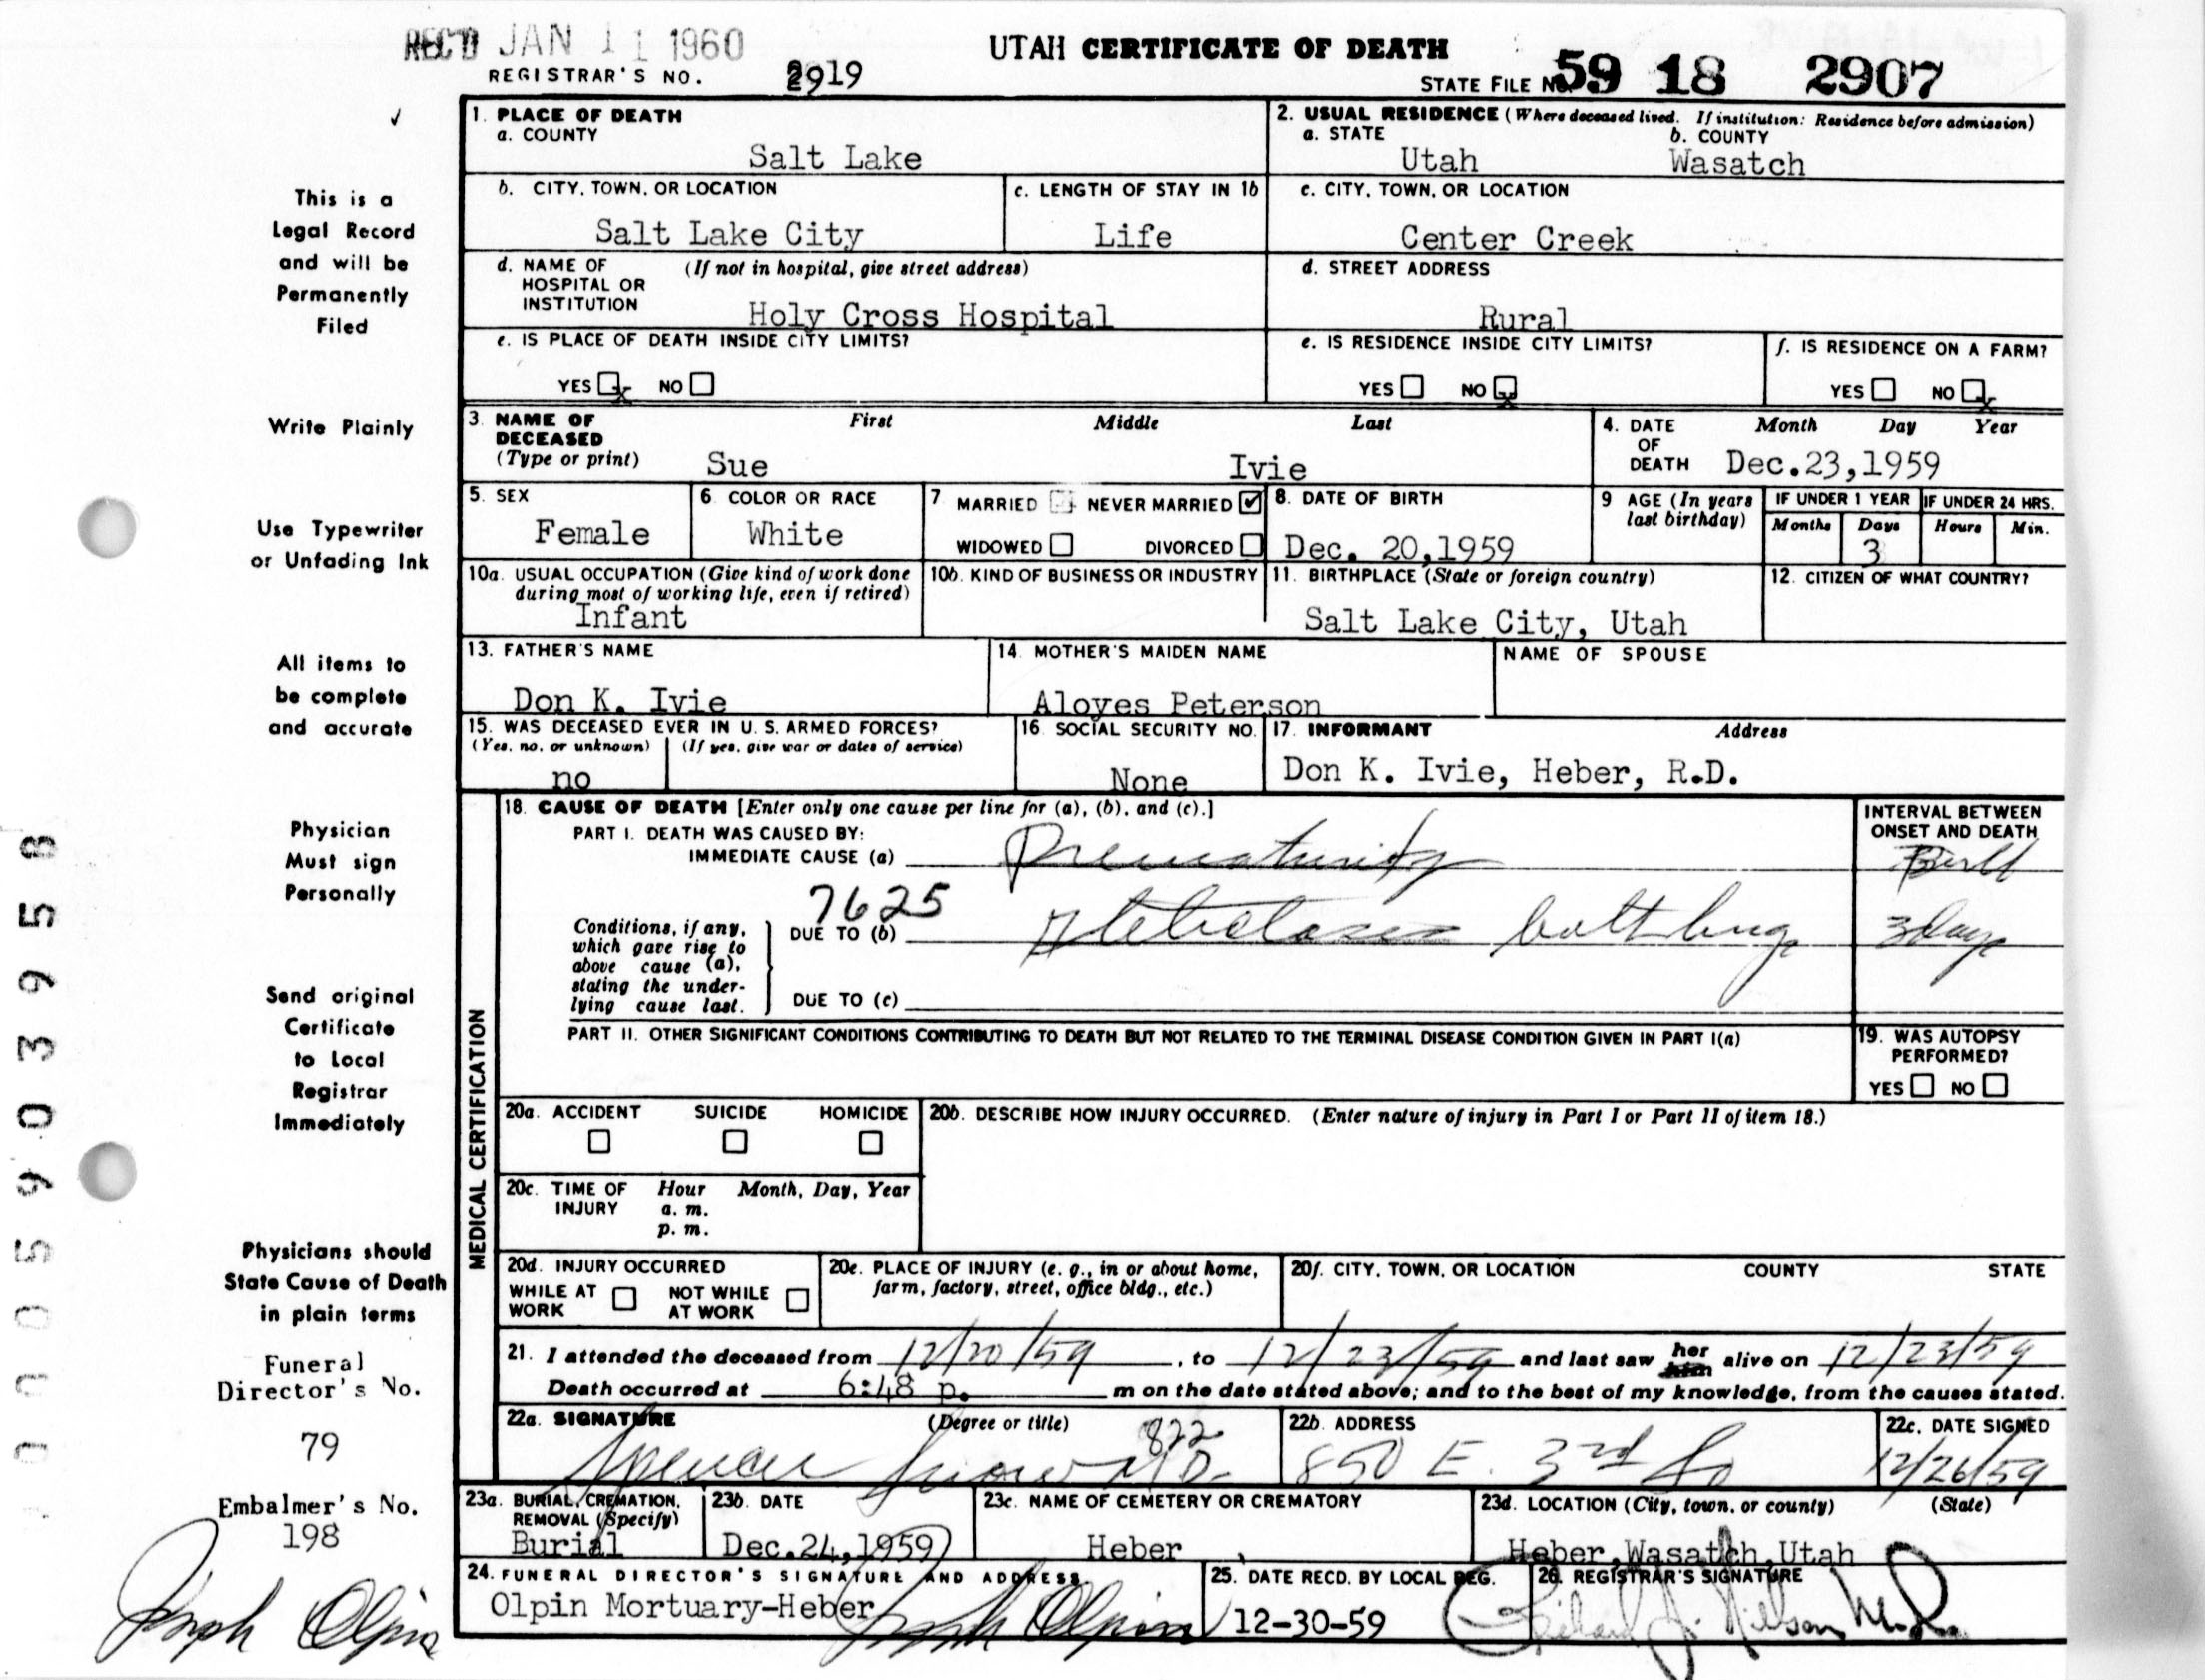 REC'D JAN 11 1960
UTAH CERTIFICATE OF DEATH
REGISTRAR'S NO. 2919
STATE FILE No. 59 18 2907
1. PLACE OF DEATH
a. COUNTY
Salt Lake
2. USUAL RESIDENCE (Where deceased lived. If institution: Residence before admission)
a. STATE b. COUNTY
Utah Wasatch
b. CITY, TOWN, OR LOCATION
Salt Lake City
c. LENGTH OF STAY IN 1b
Life
c. CITY, TOWN, OR LOCATION
Center Creek
d. NAME OF HOSPITAL OR INSTITUTION (If not in hospital, give street address)
Holy Cross Hospital
d. STREET ADDRESS
Rural
e. IS PLACE OF DEATH INSIDE CITY LIMITS?
YES x NO
e. IS RESIDENCE INSIDE CITY LIMITS?
YES NO x
f. IS RESIDENCE ON A FARM?
YES NO x
3. NAME OF DECEASED (Type or print)
First Middle Last
Sue Ivie
4. DATE OF DEATH Month Day Year
Dec.23,1959
5. SEX
Female
6. COLOR OR RACE
White
7 MARRIED NEVER MARRIED ✓
WIDOWED DIVORCED
8. DATE OF BIRTH
Dec. 20,1959
9 AGE (In years last birthday)
IF UNDER 1 YEAR IF UNDER 24 HRS.
Months Days Hours Min.
3
10a. USUAL OCCUPATION (Give kind of work done during most of working life, even if retired)
Infant
10b. KIND OF BUSINESS OR INDUSTRY
11. BIRTHPLACE (State or foreign country)
Salt Lake City, Utah
12. CITIZEN OF WHAT COUNTRY?
13. FATHER'S NAME
Don K. Ivie
14. MOTHER'S MAIDEN NAME
Aloyes Peterson
NAME OF SPOUSE
15. WAS DECEASED EVER IN U. S. ARMED FORCES?
(Yes, no, or unknown) (If yes, give war or dates of service)
no
16. SOCIAL SECURITY NO.
None
17. INFORMANT Address
Don K. Ivie, Heber, R.D.
MEDICAL CERTIFICATION
18. CAUSE OF DEATH [Enter only one cause per line for (a), (b), and (c).]
INTERVAL BETWEEN ONSET AND DEATH
PART I. DEATH WAS CAUSED BY:
IMMEDIATE CAUSE (a) Prematurity Birth
7625
Conditions, if any, which gave rise to above cause (a), stating the underlying cause last.
DUE TO (b) Atelectasis both lungs 3 days
DUE TO (c)
PART II. OTHER SIGNIFICANT CONDITIONS CONTRIBUTING TO DEATH BUT NOT RELATED TO THE TERMINAL DISEASE CONDITION GIVEN IN PART I(a)
19. WAS AUTOPSY PERFORMED?
YES NO
20a. ACCIDENT SUICIDE HOMICIDE
20b. DESCRIBE HOW INJURY OCCURRED. (Enter nature of injury in Part I or Part II of item 18.)
20c. TIME OF INJURY Hour Month, Day, Year
a. m.
p. m.
20d. INJURY OCCURRED
WHILE AT WORK NOT WHILE AT WORK
20e. PLACE OF INJURY (e. g., in or about home, farm, factory, street, office bldg., etc.)
20f. CITY, TOWN, OR LOCATION COUNTY STATE
21. I attended the deceased from 12/20/59, to 12/23/59 and last saw her him alive on 12/23/59
Death occurred at 6:48 p. m on the date stated above; and to the best of my knowledge, from the causes stated.
22a. SIGNATURE (Degree or title)
822
Spencer Snow M.D.
22b. ADDRESS
850 E. 3rd So
22c. DATE SIGNED
12/26/59
23a. BURIAL, CREMATION, REMOVAL (Specify)
Burial
23b. DATE
Dec.24,1959
23c. NAME OF CEMETERY OR CREMATORY
Heber
23d. LOCATION (City, town, or county) (State)
Heber,Wasatch,Utah
24. FUNERAL DIRECTOR'S SIGNATURE AND ADDRESS.
Olpin Mortuary-Heber Joseph Olpin
25. DATE RECD. BY LOCAL REG.
12-30-59
26. REGISTRAR'S SIGNATURE
This is a
Legal Record
and will be
Permanently
Filed
Write Plainly
Use Typewriter
or Unfading Ink
All items to
be complete
and accurate
Physician
Must sign
Personally
Send original
Certificate
to Local
Registrar
Immediately
Physicians should
State Cause of Death
in plain terms
Funeral
Director's No.
79
Embalmer's No.
198
Joseph Olpin